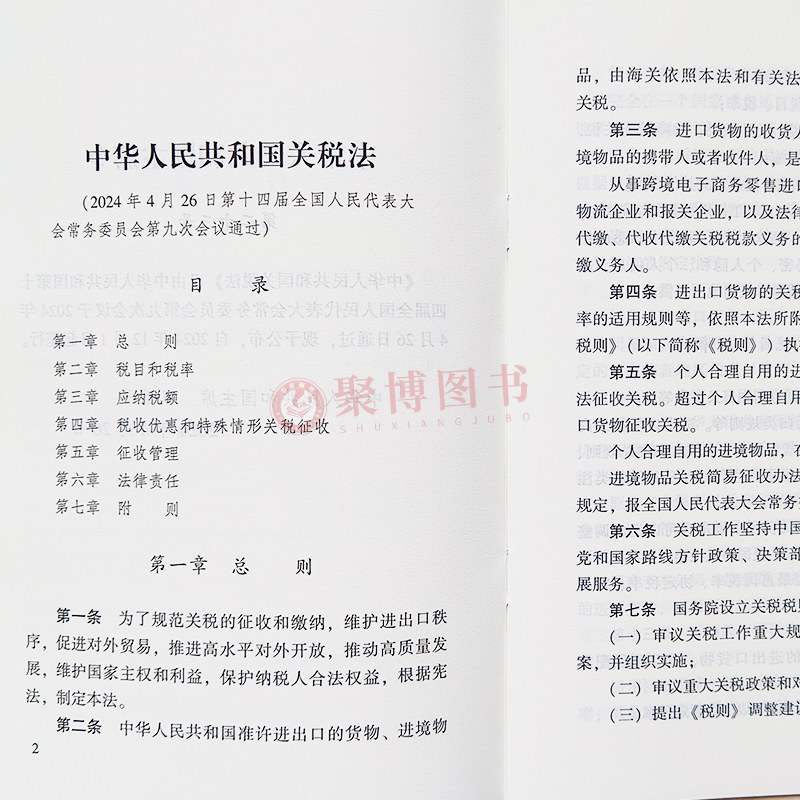 中华人民共和国关税法
（2024年4月26日第十四届全国人民代表大
会常务委员会第九次会议通过）
目 录
第一章 总 则
第二章 税目和税率
第三章 应纳税额
第四章 税收优惠和特殊情形关税征收
第五章 征收管理
第六章 法律责任
第七章 附 则
第一章 总 则
第一条 为了规范关税的征收和缴纳，维护进出口秩
序，促进对外贸易，推进高水平对外开放，推动高质量发
展，维护国家主权和利益，保护纳税人合法权益，根据宪
法，制定本法。
第二条 中华人民共和国准许进出口的货物、进境物
2
品，由海关依照本法和有关法
关税。
第三条 进口货物的收货人
境物品的携带人或者收件人，是
从事跨境电子商务零售进口
物流企业和报关企业，以及法律
代缴、代收代缴关税税款义务的
缴义务人。
第四条 进出口货物的关税
率的适用规则等，依照本法所附
税则》（以下简称《税则》）执
第五条 个人合理自用的进
法征收关税。超过个人合理自用
口货物征收关税。
个人合理自用的进境物品，在
进境物品关税简易征收办法
规定，报全国人民代表大会常务
第六条 关税工作坚持中国
党和国家路线方针政策、决策部
展服务。
第七条 国务院设立关税税则
（一）审议关税工作重大规
案，并组织实施；
（二）审议重大关税政策和对
（三）提出《税则》调整建议
聚博图书
SHUXIANGJUBO